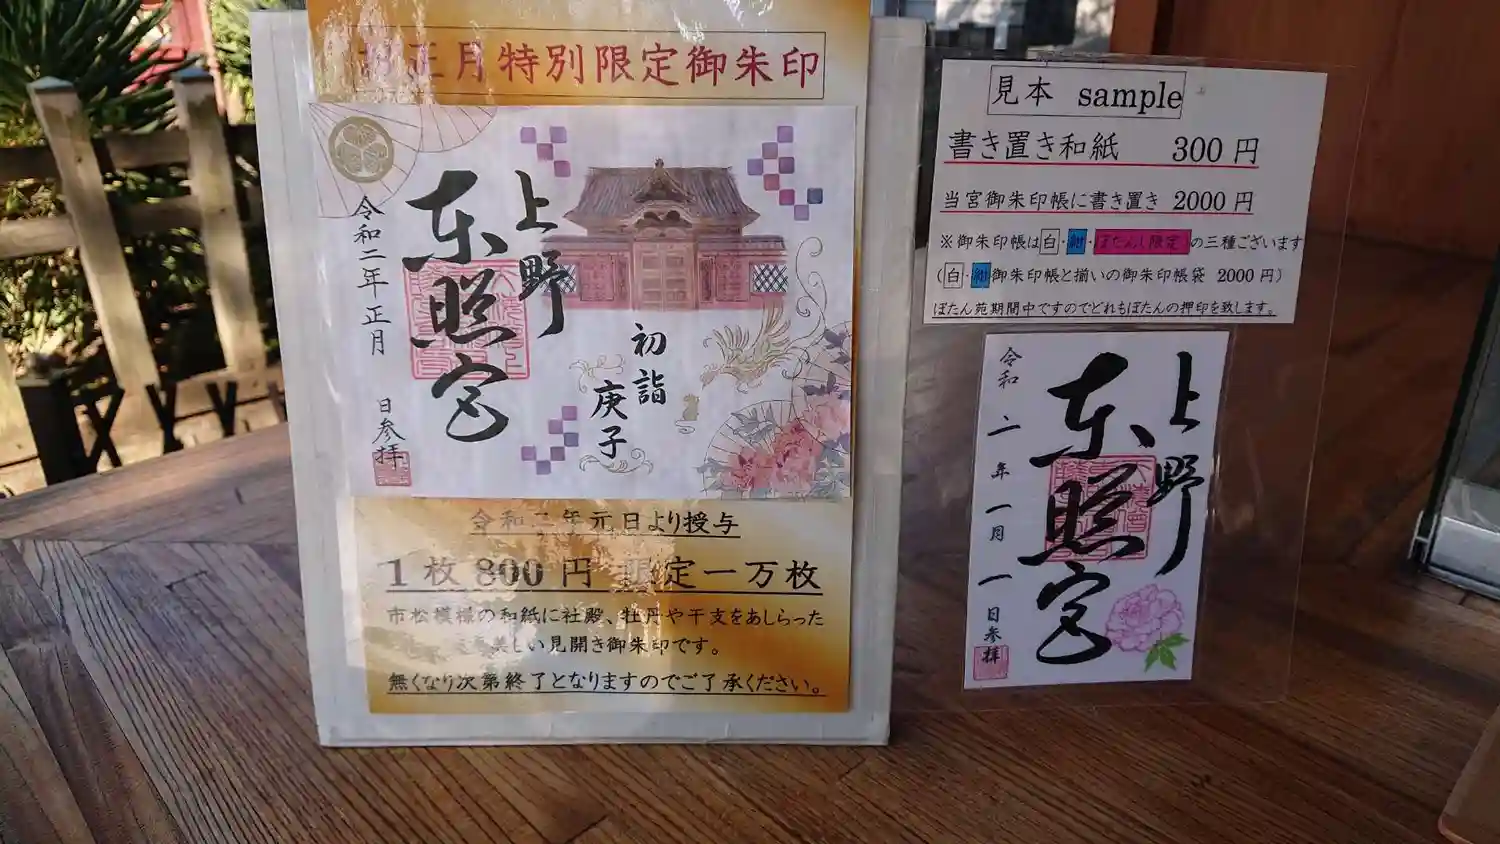 正月特別限定御朱印
上野
東照宮
令和二年正月
日参拝
初詣
庚子
令和二年元日より授与
1枚 800円 限定一万枚
市松模様の和紙に社殿、牡丹や干支をあしらった
美しい見開き御朱印です。
無くなり次第終了となりますのでご了承ください。
見本 sample
書き置き和紙 300円
当宮御朱印帳に書き置き 2000円
※御朱印帳は白・紺・ぼたん(限定)の三種ございます
(白・紺御朱印帳と揃いの御朱印帳袋 2000円)
ぼたん苑期間中ですのでどれもぼたんの押印を致します。
上野
東照宮
令和二年一月一日参拝